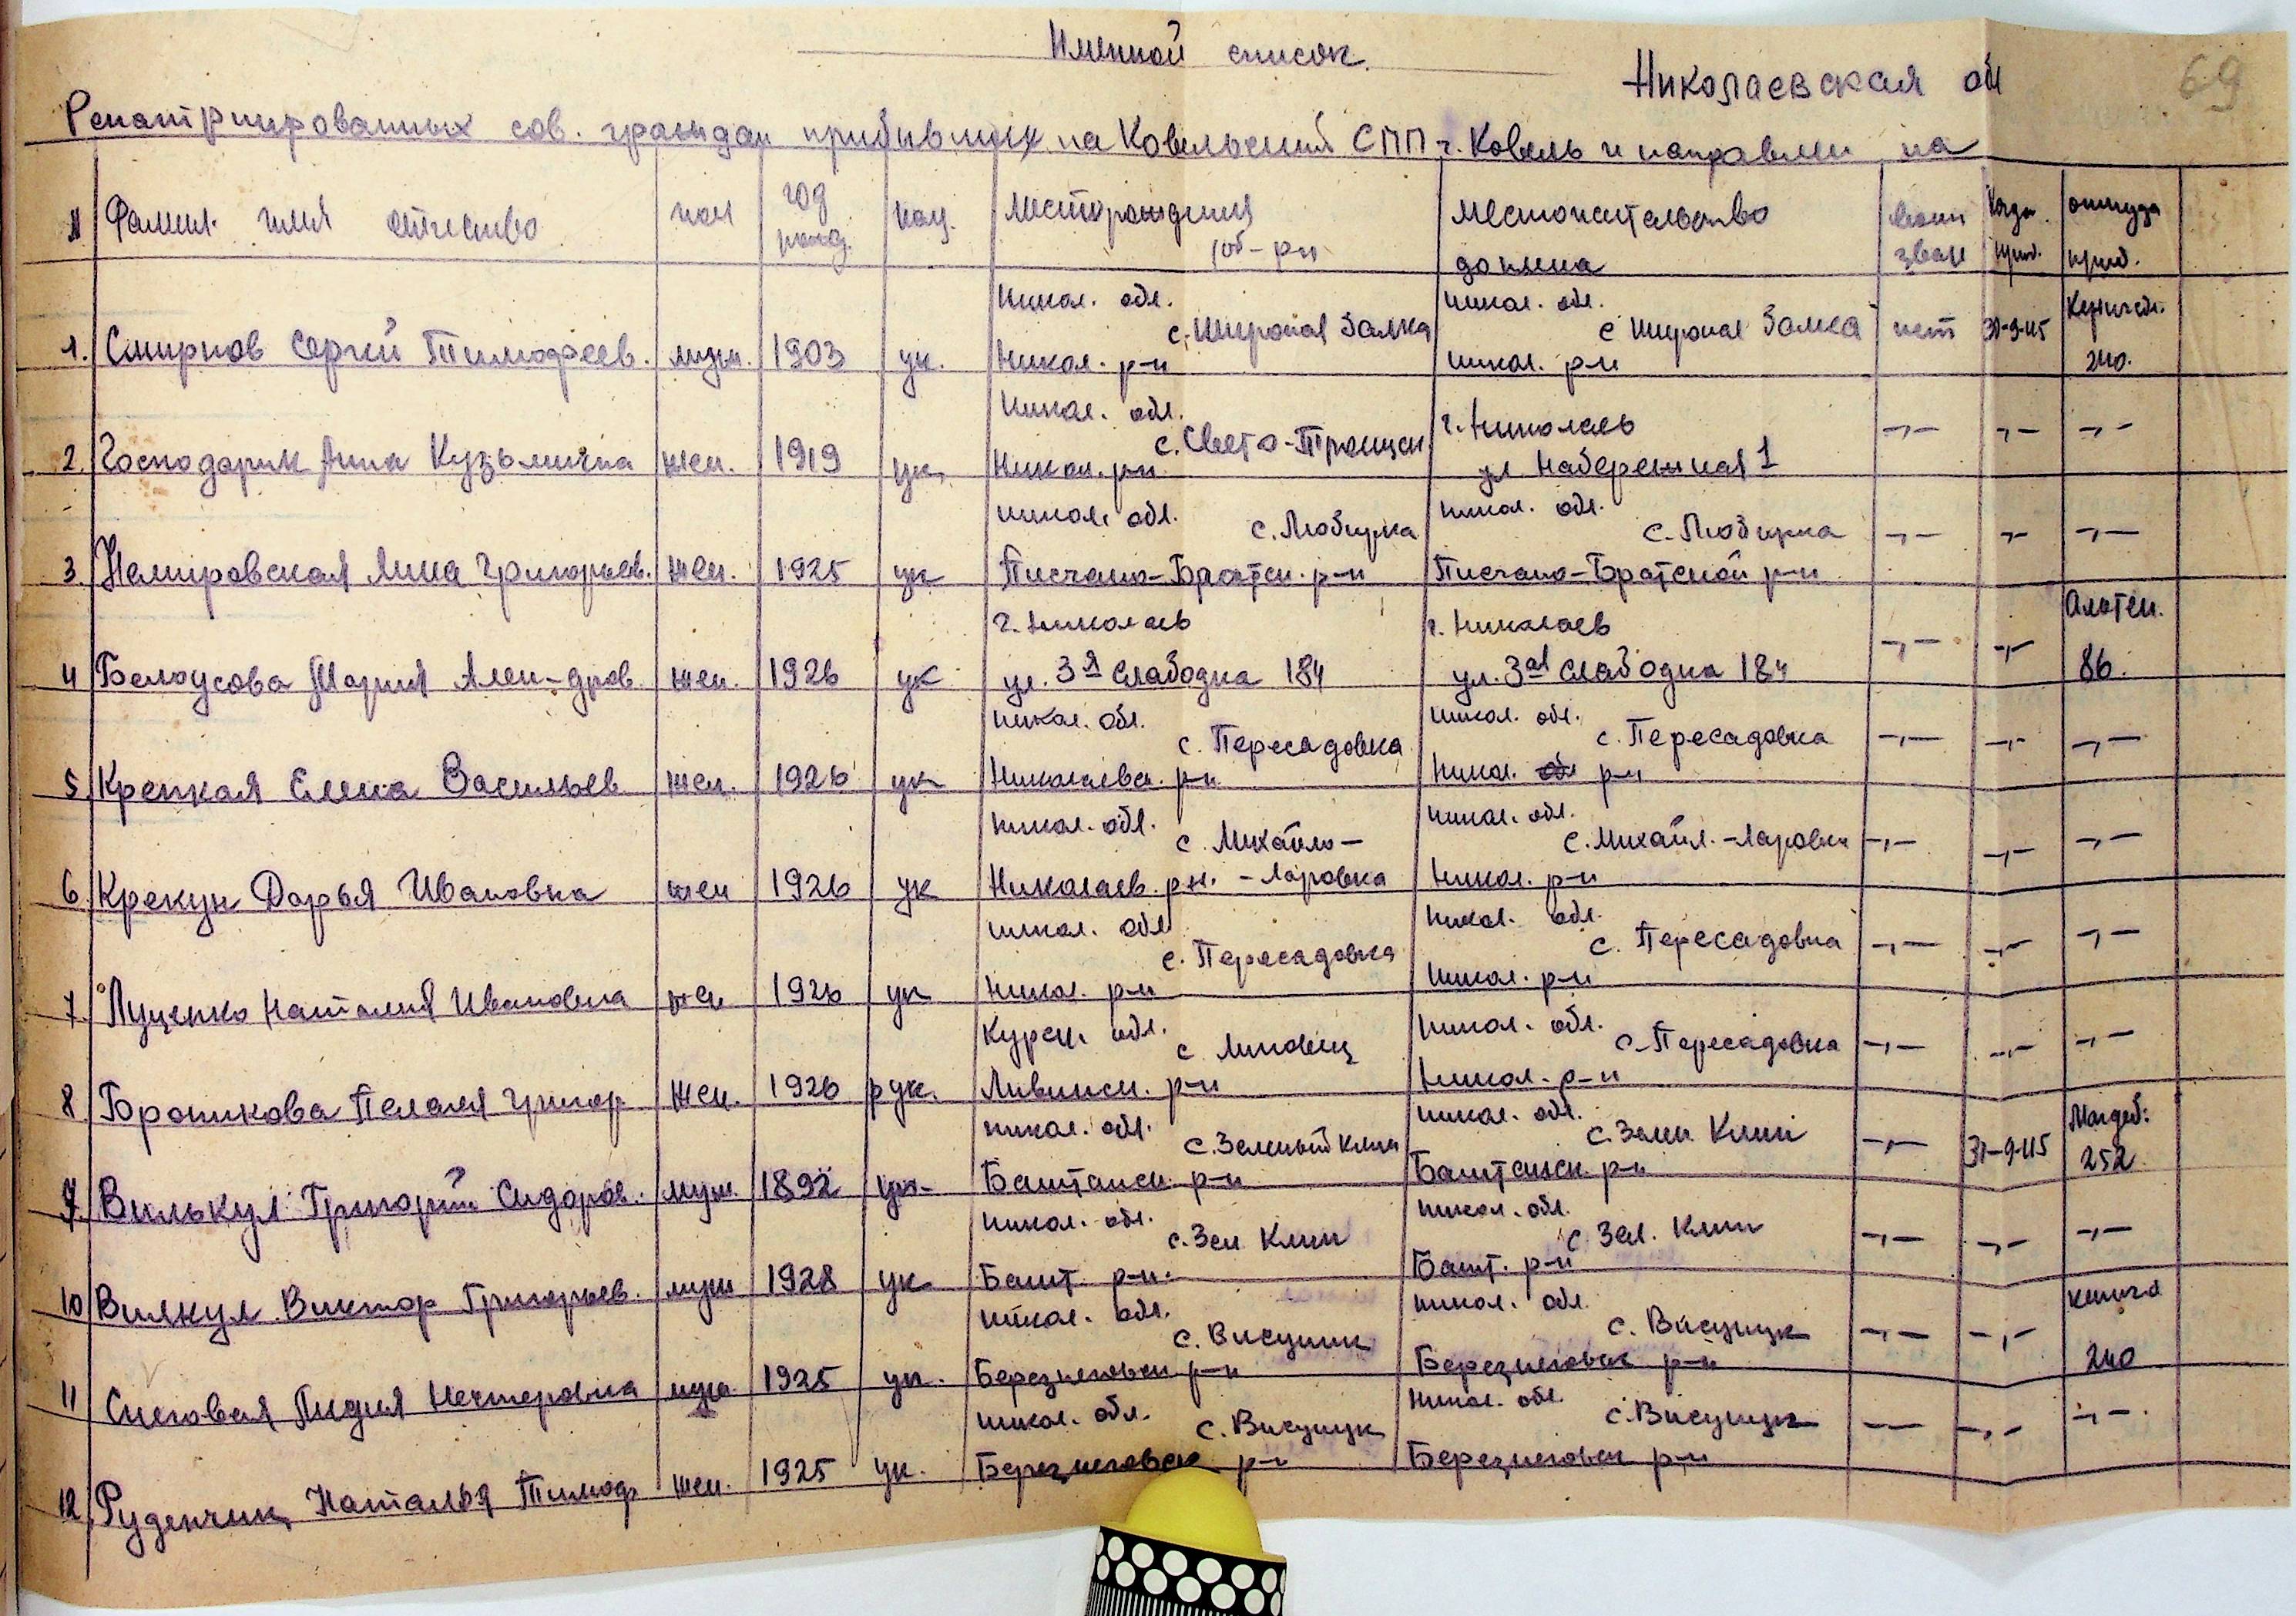 Именной список.
Николаевская обл
69
Репатриированных сов. граждан прибывших на Ковельский СПП г. Ковель и направлен на
N Фамил. имя отчество пол год рожд. нац. Месторождения (об-р-н местожительство до плена воин зван Когда приб. откуда приб.
1. Смирнов Сергей Тимофеев. муж. 1903 ук. Никол. обл. с. Широкая Балка Никол. р-н никол. обл. с Широкая Балка никол. р-н нет 31-9-45 240.
2. Господарик Анна Кузьминична жен. 1919 ук. Никол. обл. с. Свето-Троицк Никол. р-н г. Николаев ул. Набережная 1 -,,- -,,- -,,-
3. Немировская Анна Григорьев. жен. 1925 ук никол. обл. с. Любирка Писчано-Братск. р-н никол. обл. с. Любирка Писчано-Братской р-н -,,- -,,- -,,-
4 Белоусова Мария Алек-дров. жен. 1926 ук г. Николаев ул. 3я Слабодка 184 г. Николаев ул. 3ая Слабодка 184 -,,- -,,- 86.
5. Крепкая Елена Васильев жен. 1926 ук никол. обл. с. Пересадовка Николаевск. р-н никол. обл. с. Пересадовка Никол. р-н -,,- -,,- -,,-
6. Крекун Дарья Ивановна жен 1926 ук никол. обл. с. Михайло- Николаев. р-н. -Ларовка никол. обл. с. Михайл.-Ларовка Никол. р-н -,,- -,,- -,,-
7. Луценко Наталия Ивановна жен 1926 ук никол. обл с. Пересадовка Никол. р-н никол. обл. с. Пересадовка Никол. р-н -,,- -,,- -,,-
8 Борошкова Пелагея Григор жен. 1926 рук. Курск. обл. с Липовец Ливинск. р-н никол. обл. с. Пересадовка Никол. р-н -,,- -,,- -,,-
9. Вилькул Григорий Сидоров. муж. 1892 ук- никол. обл. с. Зеленый Клин Баштанск. р-н никол. обл. с. Зелен Клин Баштанск. р-н -,,- 31-9-45 Магдеб: 252
10 Вилкул Виктор Григорьев. муж 1928 ук никол. обл. с. Зел Клин Башт. р-н. никол. обл. с. Зел. Клин Башт. р-н -,,- -,,- -,,-
11 Снеговая Лидия Нестеровна 1925 ук. никол. обл. с. Висунск Березнеговск р-н никол. обл. с. Висунцк Березнеговск р-н -,,- -,,- 240
12. Руденчик Наталья Тимоф жен. 1925 ук. никол. обл. с. Висунцк Березнеговск р-н Никол. обл. с. Висунцк Березнеговск р-н -,- -,,- -,,-